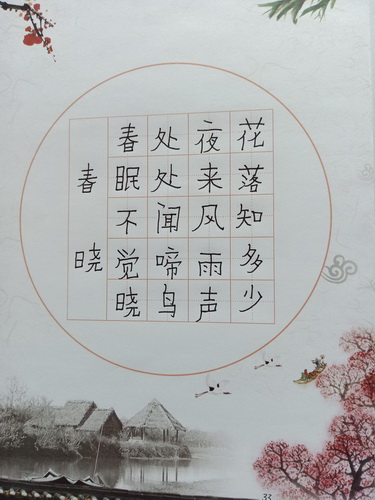 春晓
春眠不觉晓
处处闻啼鸟
夜来风雨声
花落知多少
33